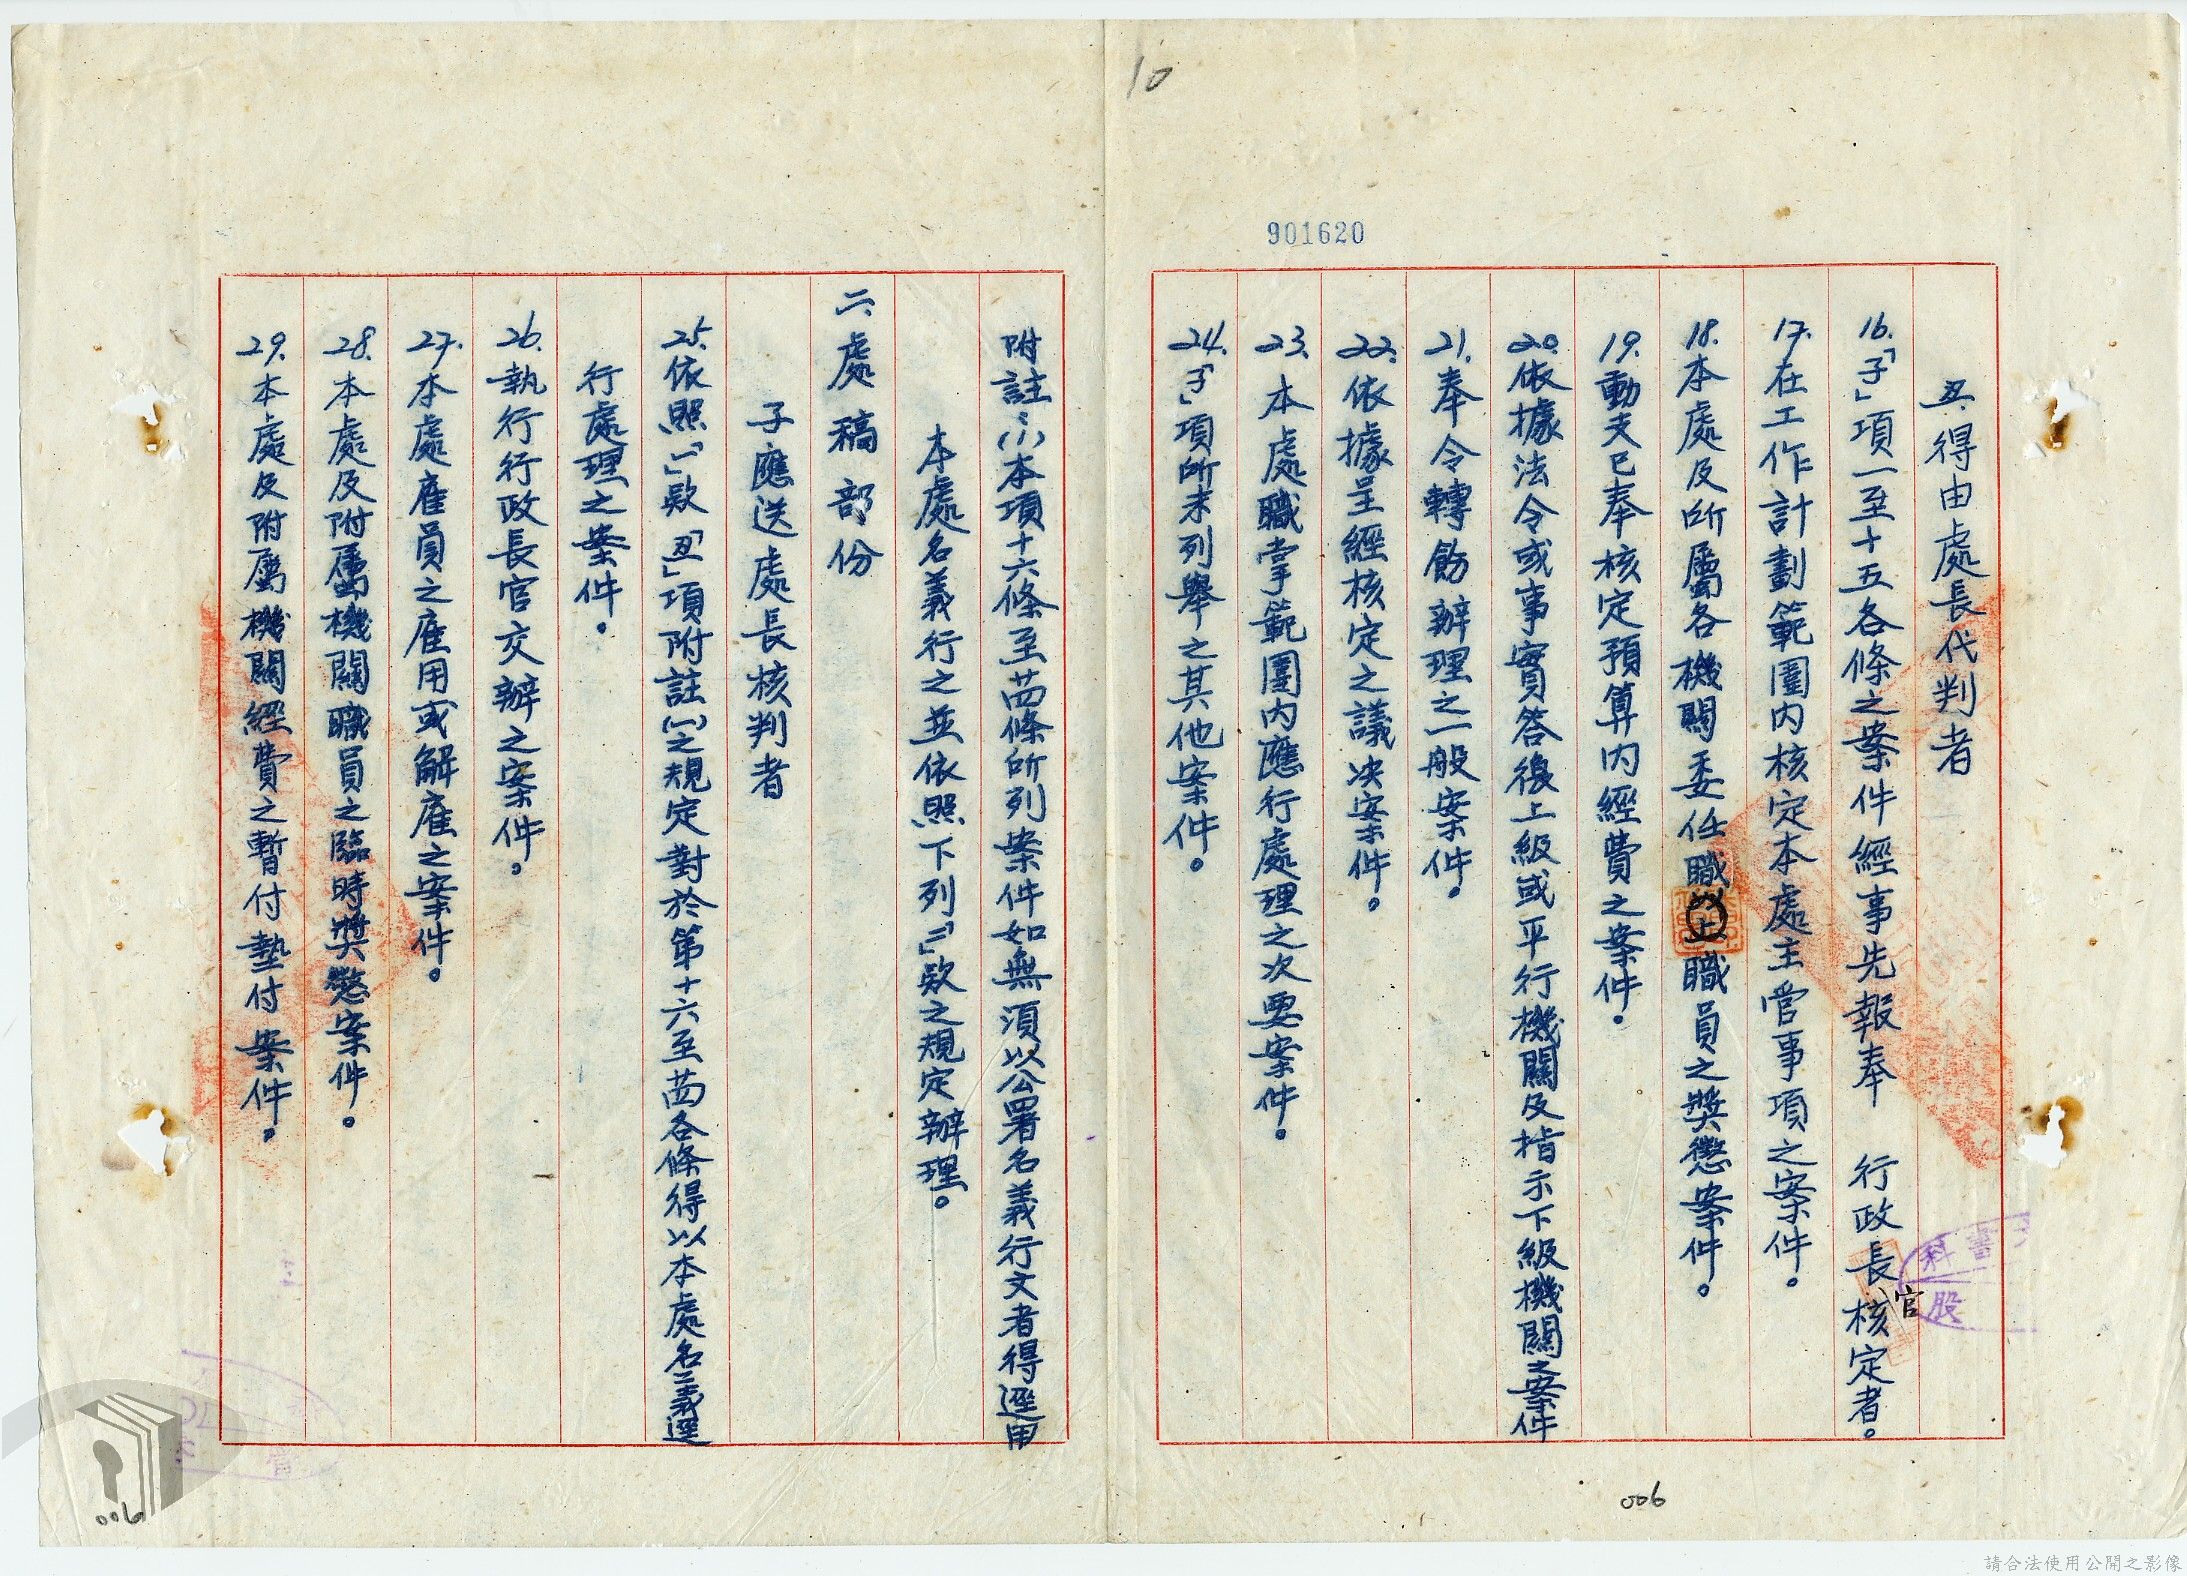 10
901620
丑、得由處長代判者
16.「子」項一至十五各條之案件經事先報奉　行政長官核定者。
17.在工作計劃範圍內核定本處主管事項之案件。
18.本處及所屬各機關委任職以上職員之獎懲案件。
19.動支已奉核定預算內經費之案件。
20.依據法令或事實答復上級或平行機關及指示下級機關之案件
21.奉令轉飭辦理之一般案件。
22.依據呈經核定之議决案件。
23.本處職掌範圍內應行處理之次要案件。
24.「子」項所未列舉之其他案件。
附註：(一)本項十六條至廿四條所列案件如無須以公署名義行文者得逕用
本處名義行之並依照下列「二」欵之規定辦理。
二、處稿部份
子應送處長核判者
25.依照「一」欵「丑」項附註(一)之規定對於第十六至廿四各條得以本處名義逕
行處理之案件。
26.執行行政長官交辦之案件。
27.本處雇員之雇用或解雇之案件。
28.本處及附屬機關職員之臨時獎懲案件。
29.本處及附屬機關經費之暫付墊付案件。
006
006
請合法使用公開之影像